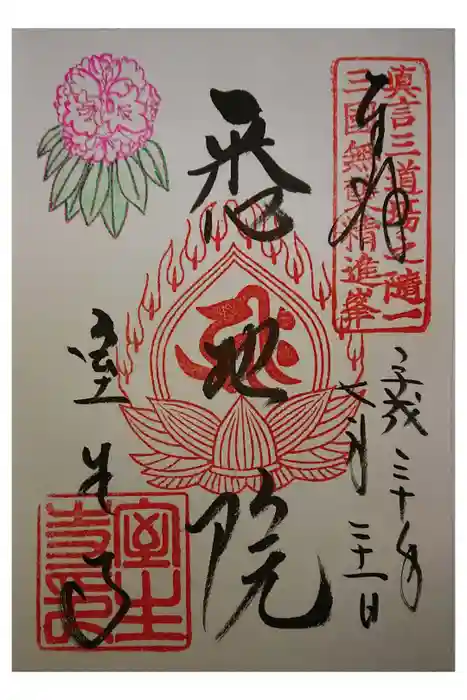 真言三道場之随一
三國無雙精進峯
奉拝
平成三十年
月二十一日
悉地院
室生寺
室生